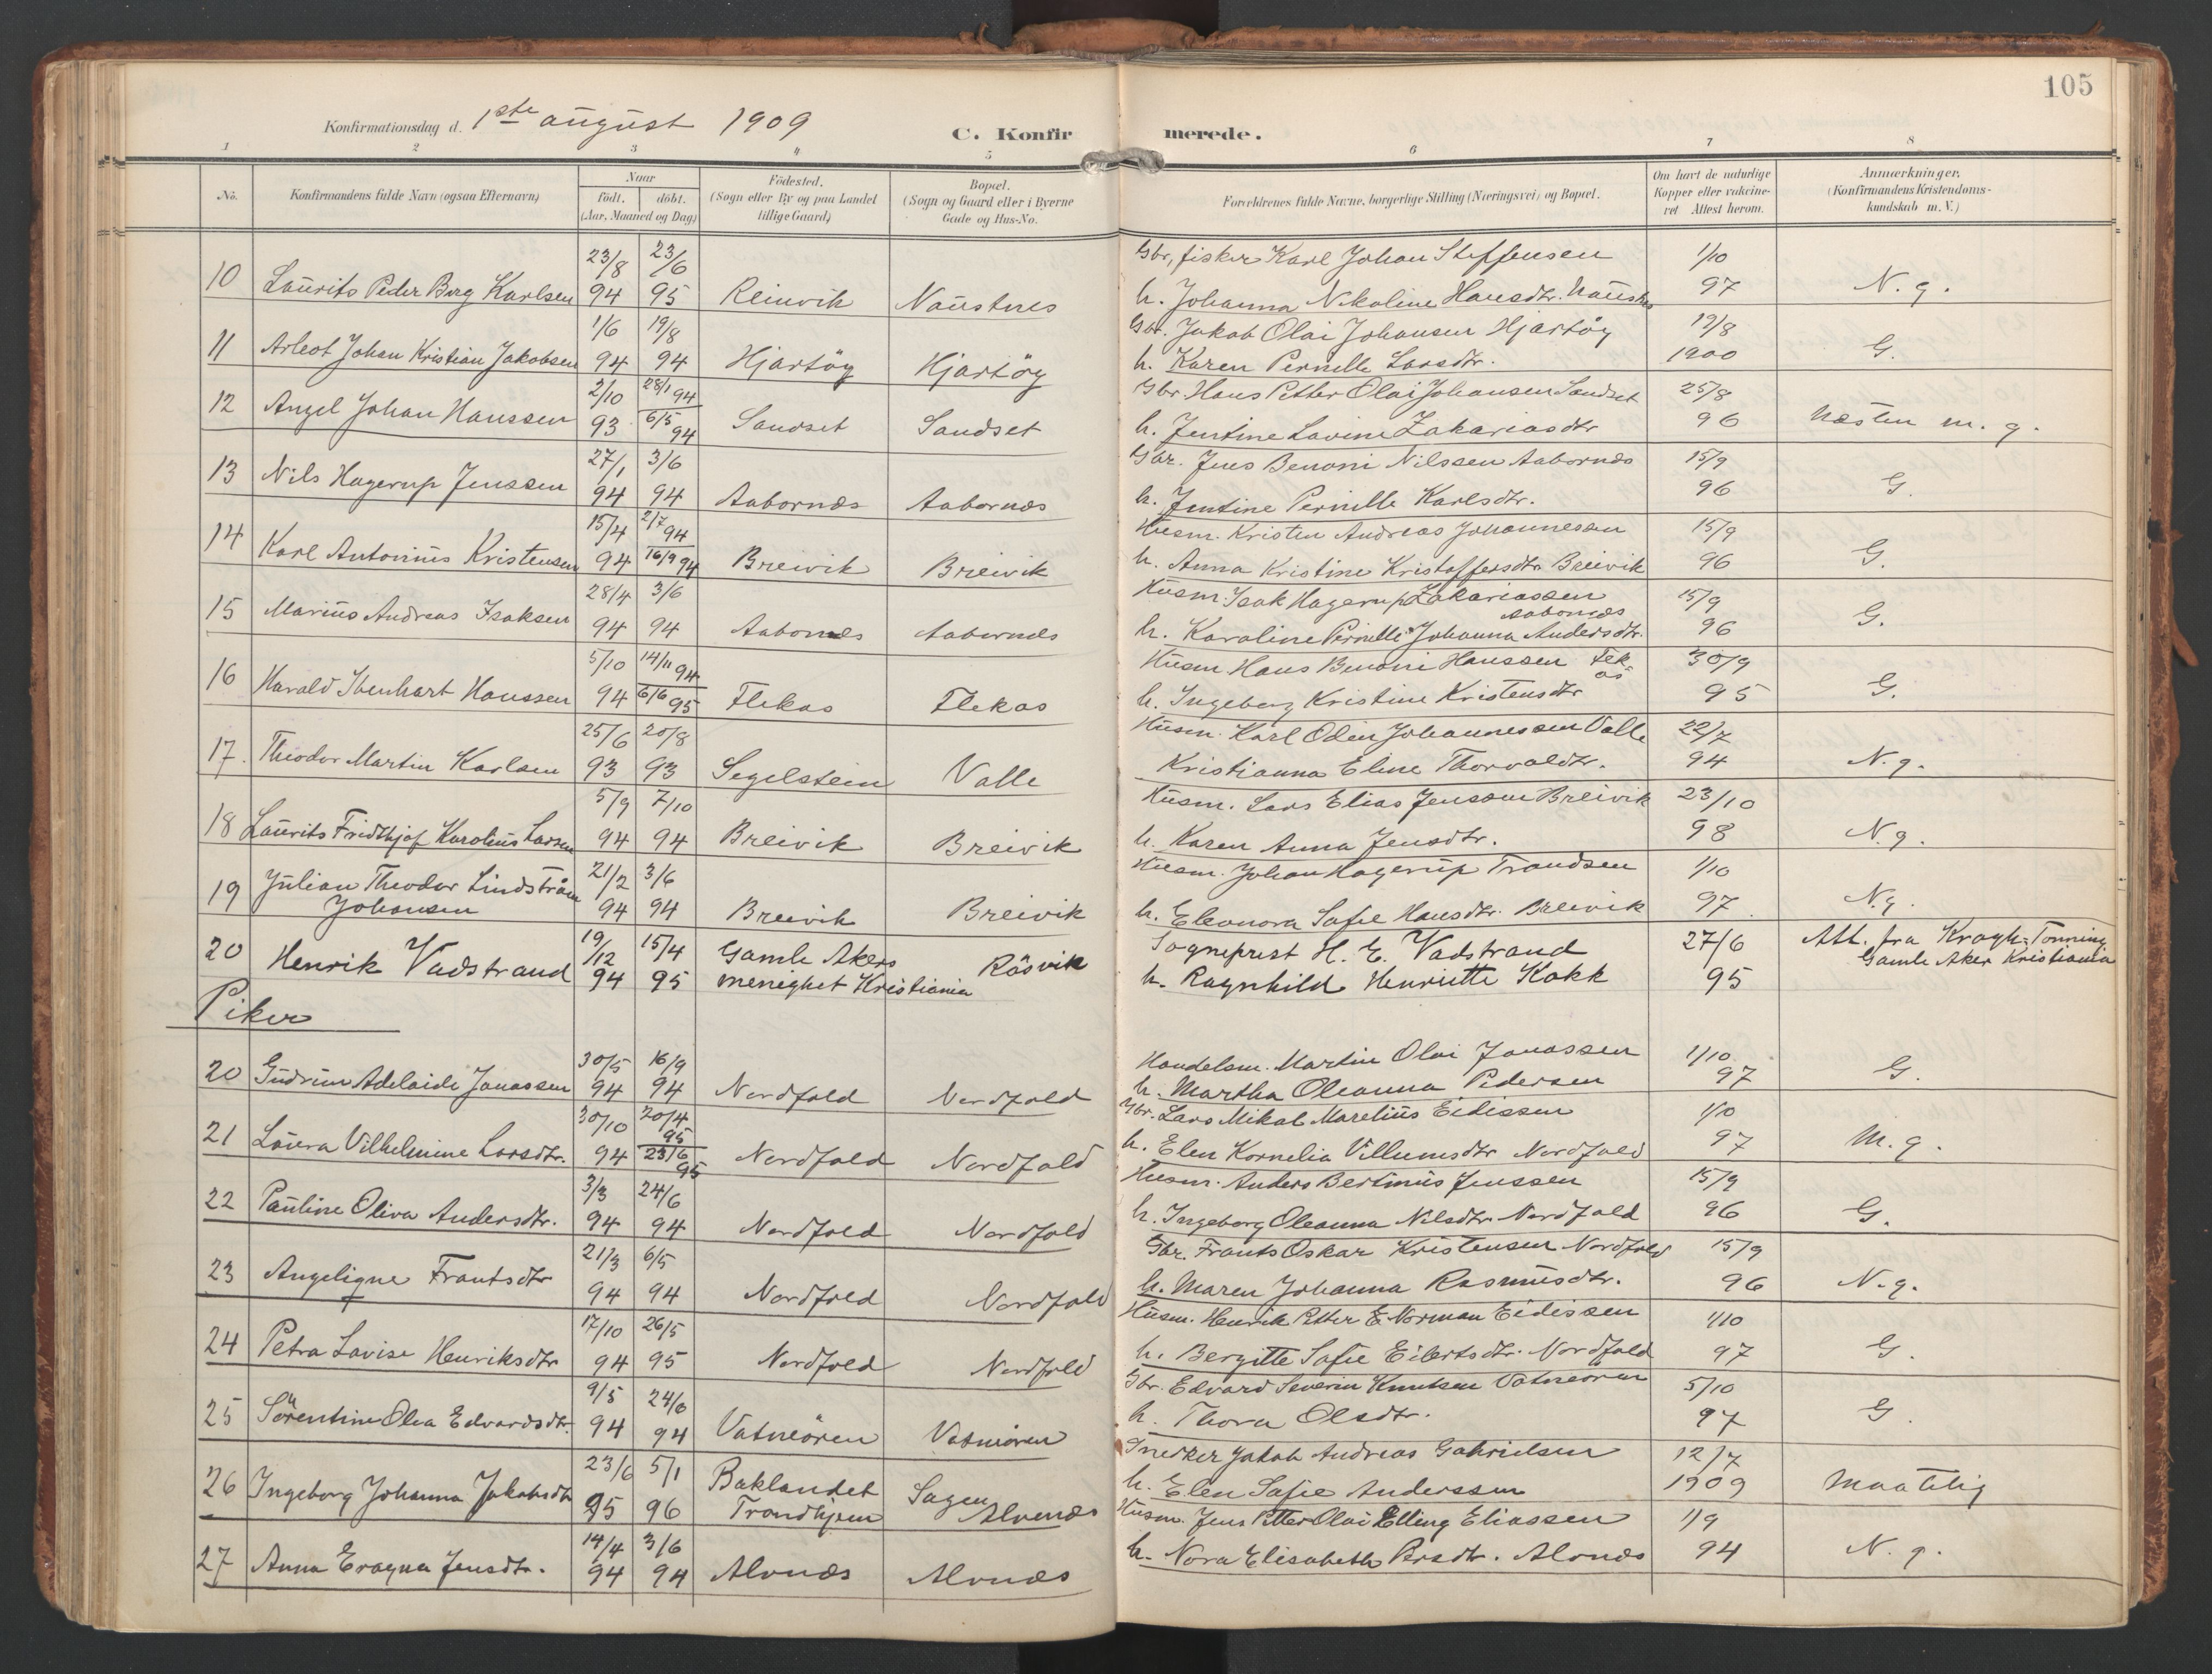 105
Konfirmationsdag d. 1ste august 1909
C. Konfirmerede.
1 2 3 4 5 6 7 8
No. Konfirmandens fulde Navn (ogsaa Efternavn) Naar født. døbt. (Aar, Maaned og Dag) Fødested. (Sogn eller By og paa Landet tillige Gaard) Bopæl. (Sogn og Gaard eller i Byerne Gade og Hus-No. Forældrenes fulde Navne, borgerlige Stilling (Næringsvei) og Bopæl. Om havt de naturlige Kopper eller vakcineret Attest herom. Anmærkninger. (Konfirmandens Kristendomskundskab m. V.)
10 Laurits Peder Berg Karlsen 23/8 94 23/6 95 Reinvik Naustnes Gbr, fisker Karl Johan Steffensen 1/10
h. Johanna Nikoline Hansdtr. 97 N. g.
11 Johan Kristian Jakobsen 1/6 94 19/8 94 Hjartöy Hjartöy Gbr. Jakob Olai Johansen Hjartöy 19/8
h. Karen Pernille Larsdtr. 1900 G.
12 Angel Johan Hanssen 2/10 93 28/1 94 6/5 94 Sandset Sandset Gbr. Hans Petter Olai Johansen Sandset 25/8
h. Jentine Lovine Zakariasdtr 96 Næsten m. g.
13 Nils Hagerup Jenssen 27/1 94 3/6 94 Aabornæs Aabornæs Gbr. Jens Benoni Nilssen Aabornæs 15/9
h. Jentine Pernille Karlsdtr. 96 G.
14 Karl Antonius Kristensen 15/4 94 2/7 94 16/9 94 Breivik Breivik Husm. Kristen Andreas Johannessen 15/9
h. Anna Kristine Kristoffersdtr Breivik 96 G.
15 Marius Andreas Isaksen 28/4 94 3/6 94 Aabornæs Aabornæs Husm. Isak Hagerup Zakariassen Aabornæs 15/9
h. Karoline Pernille Johanna Andersdtr. 96 G.
16 Harald Ibenhart Hanssen 5/10 94 14/11 94 6/6 95 Flekas Flekas Husm Hans Benoni Hanssen 30/9
h. Ingeborg Kristine Kristensdtr 95 G.
17. Theodor Martin Karlsen 25/6 93 20/8 93 Segelstein Valle Husm. Karl Odin Johannessen Valle 22/7
Kristianna Eline Thorvaldtr. 94 N. g.
18 Laurits Fridthjof Karolius Larsen 5/9 94 7/10 94 Breivik Breivik Husm. Lars Elias Jenssen Breivik 23/10
h. Karen Anna Jensdtr. 98 N. g.
19 Julian Theodor Lindstrøm Johansen 21/2 94 3/6 94 Breivik Breivik Husm. Johan Hagerup Trandsen 1/10
h. Eleonora Sofie Hansdtr. Breivik 97 N. g.
20 Henrik Vadstrand 19/12 94 15/4 95 Gamle Akers menighet Kristiania Rösvik Sogneprest H. E. Vadstrand 27/6 Att. fra Kragh-Tonning
h. Ragnhild Henriette Kokk 95 Gamle Aker Kristiania
Piker
20 Gudrun Adelaide Jonassen 30/5 94 16/9 94 Nordfold Nordfold Handelsm. Martin Olai Jonassen 1/10
h. Martha Oleanna Pedersen 97 G.
21 Laura Vilhelmine Larsdtr. 30/10 94 20/4 95 23/6 95 Nordfold Nordfold Gbr. Lars Mikal Marelius Eidissen 1/10
h. Elen Kornelia Villumsdtr Nordfold 97 M. g.
22 Pauline Oliva Andersdtr. 3/3 94 24/6 94 Nordfold Nordfold Husm. Anders Bertinius Jenssen 15/9
h. Ingeborg Oleanna Nilsdtr Nordfold 96 G.
23 Angeligne Frantsdtr 21/3 94 6/5 94 Nordfold Nordfold Gbr. Frants Oskar Kristensen Nordfold 15/9
h. Maren Johanna Rasmusdtr. 96 N. g.
24 Petra Lovise Henriksdtr 17/10 94 26/5 95 Nordfold Nordfold Husm. Henrik Petter E. Norman Eidissen 1/10
h. Bergitte Sofie Eilertsdtr. Nordfold 97 G.
25 Sörentine Olea Edvardsdtr. 9/5 94 24/6 94 Vatneören Vatneören Gbr. Edvard Severin Knutsen Vatneören 5/10
h. Thora Olsdtr. 97 G.
26 Ingeborg Johanna Jakobsdtr 23/6 95 5/1 96 Baklandet Trondhjem Sagen Alvenæs Snedker Jakob Andreas Gabrielsen 12/7
h. Elen Sofie Anderssen 1909 Maatelig
27 Anna Eragna Jensdtr. 14/4 94 3/6 94 Alvnæs Alvnæs Husm. Jens Petter Olai Elling Eliassen 1/9
h. Nora Elisabeth Persdtr. Alvnæs 94 N. g.